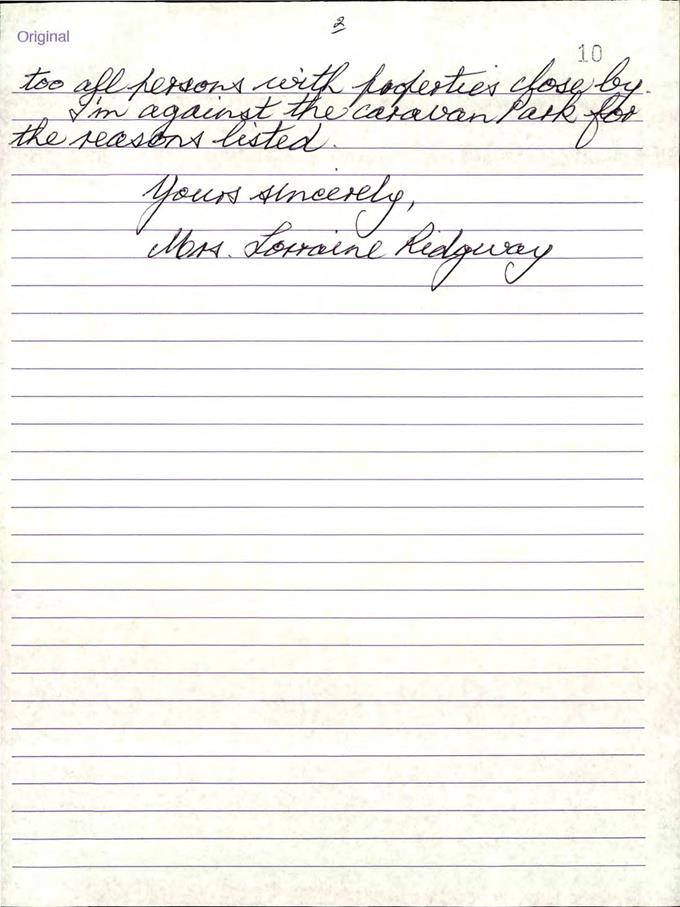 2
Original
10
too all persons with properties close by.
I'm against the caravan Park for
the reasons listed.
Yours sincerely,
Mrs. Lorraine Ridgway